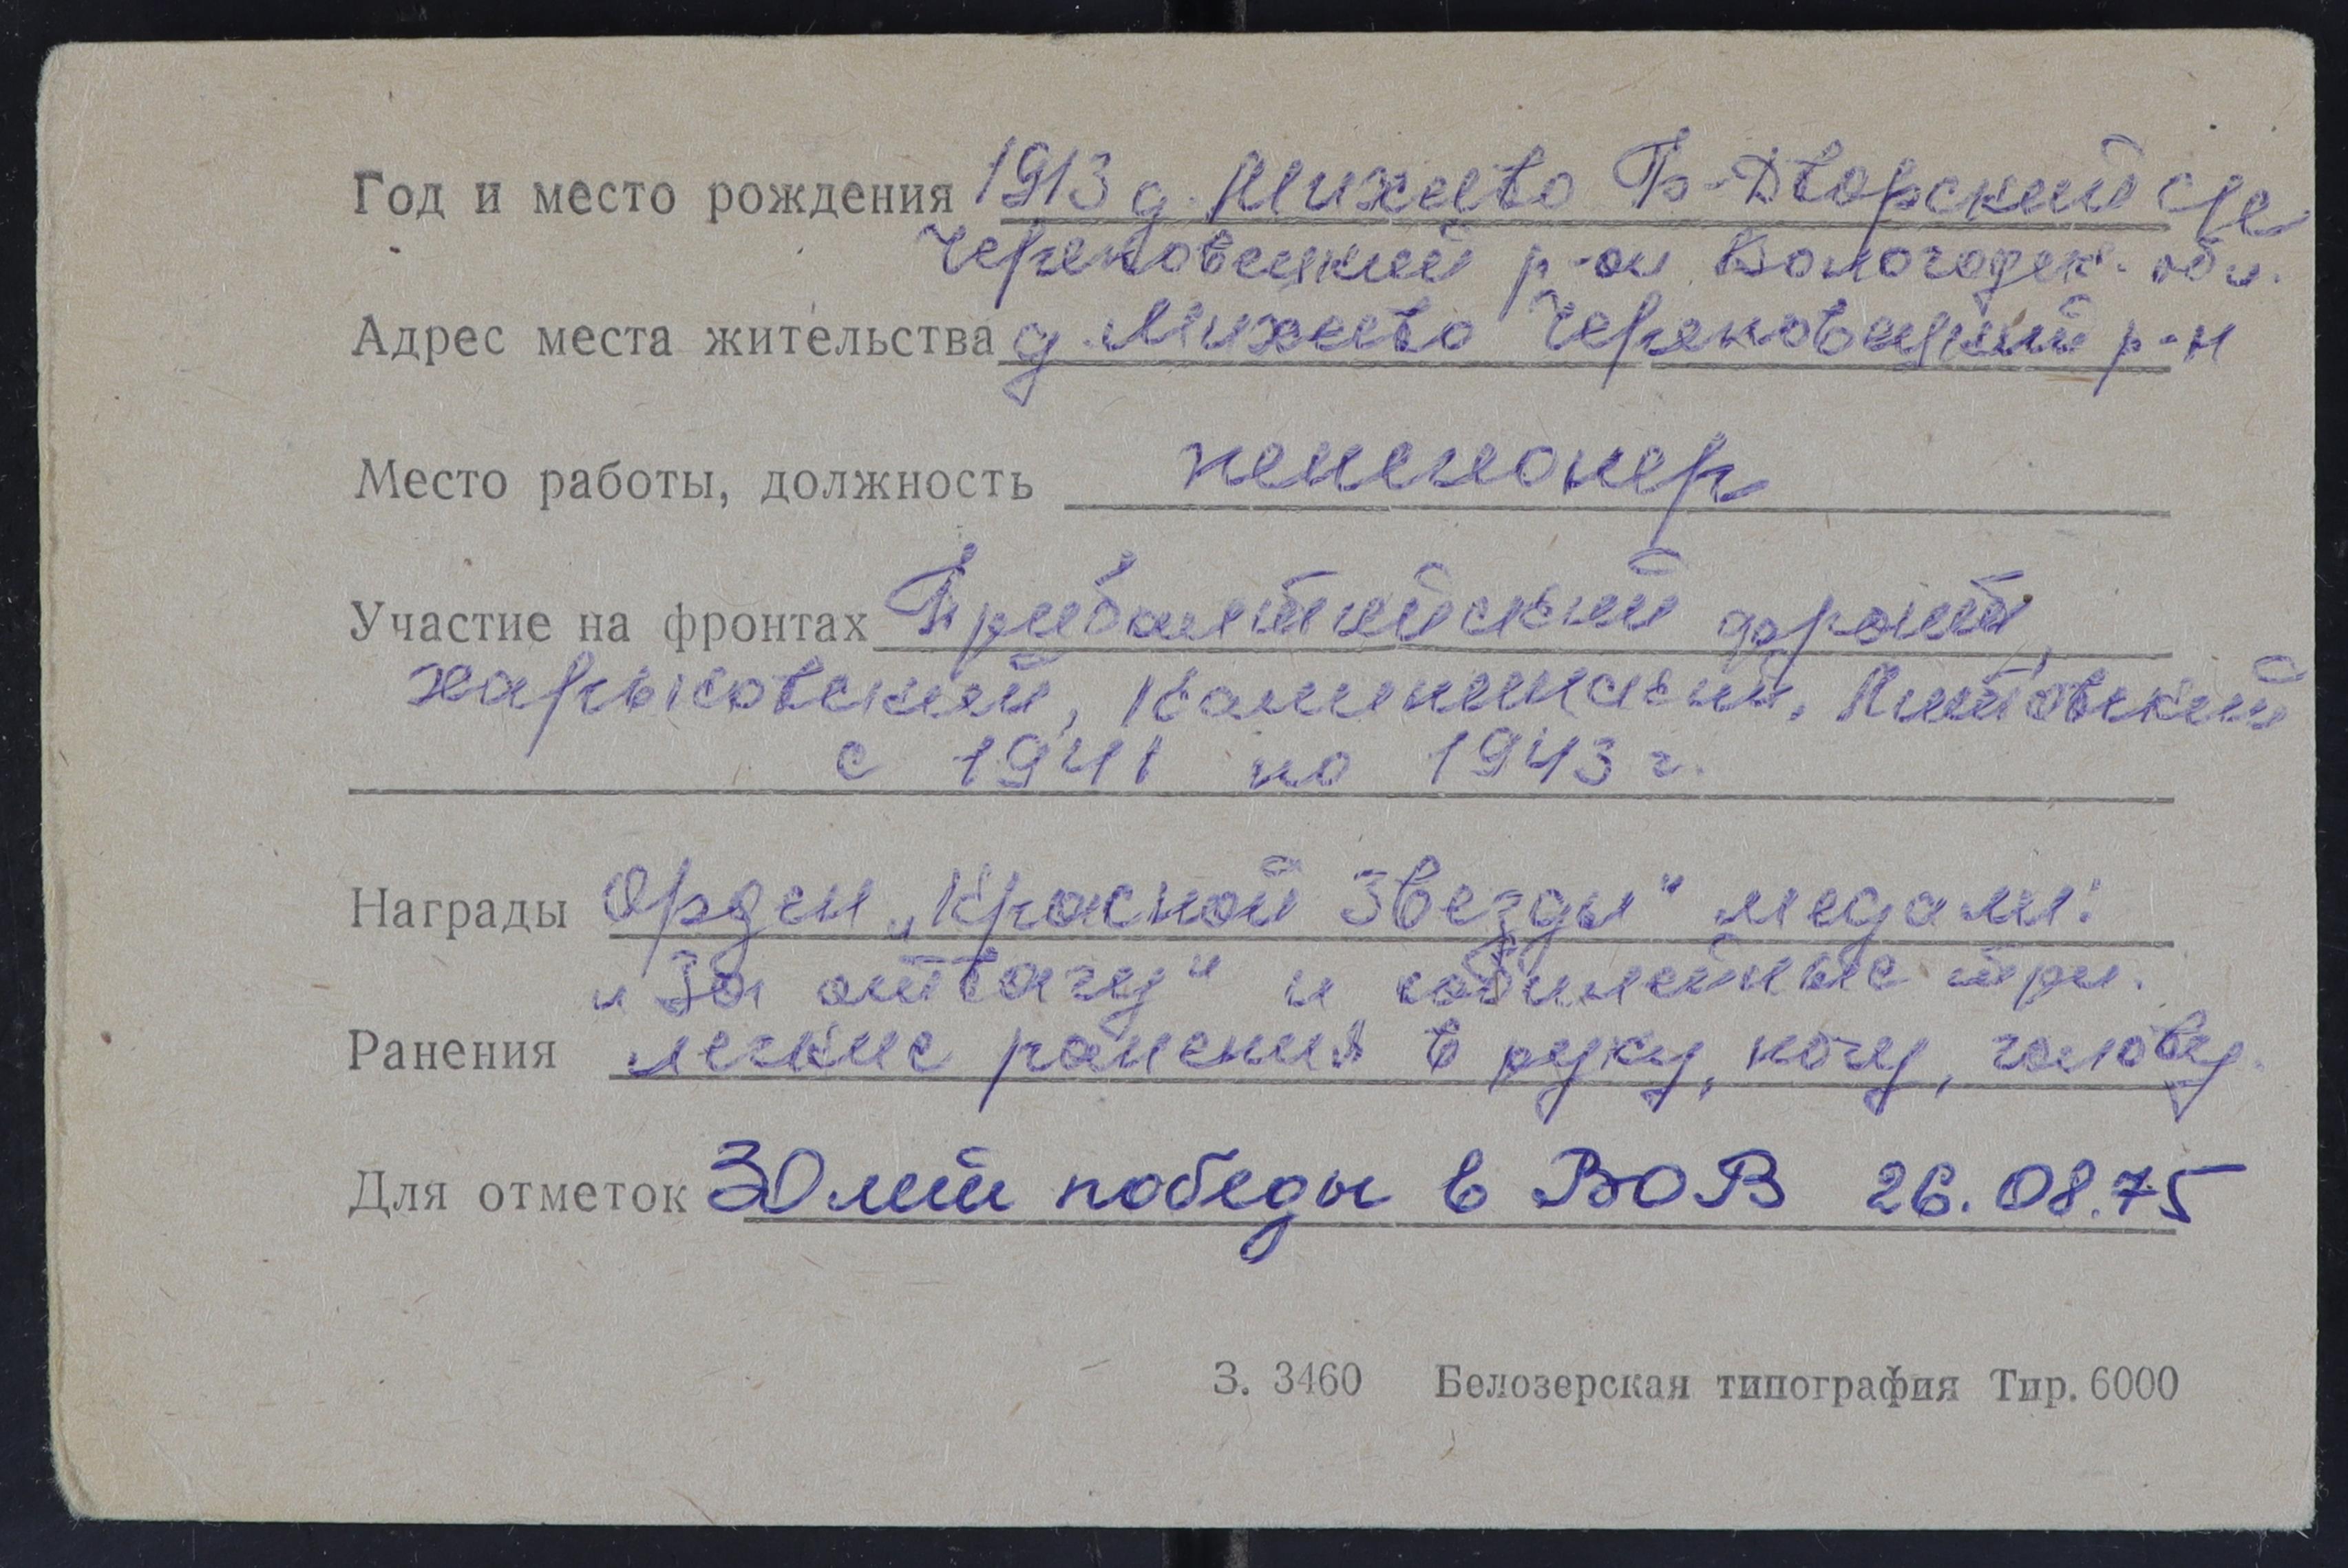 Год и место рождения 1913 д. Михеево Б-Дворский с/с
Череповецкий р-он Вологодск. обл.
Адрес места жительства д. Михеево Череповецкий р-н
Место работы, должность пенсионер
Участие на фронтах Прибалтийский фронт,
Харьковский, Калининский, Литовский
с 1941 по 1943 г.
Награды Орден „Красной Звезды" медали:
„За отвагу" и юбилейные три.
Ранения легкие ранения в руку, ногу, голову.
Для отметок 30 лет победы в ВОВ 26.08.75
З. 3460 Белозерская типография Тир. 6000